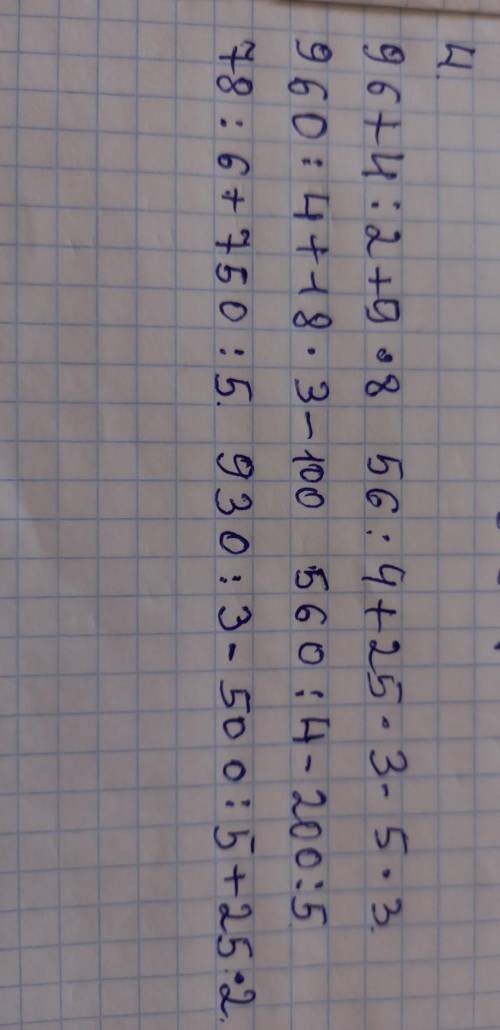 4.
96+4:2+9·8 56:4+25·3-5·3.
960:4+18·3-100 560:4-200:5
78:6+750:5. 930:3-500:5+25·2.